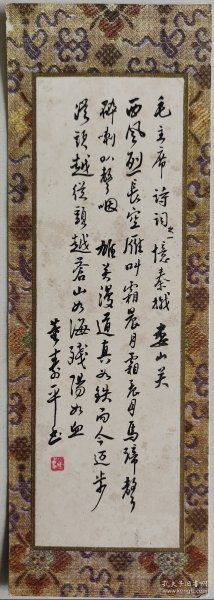 毛主席诗词之一忆秦娥娄山关
西风烈长空雁叫霜晨月霜晨月马蹄声
碎喇叭声咽雄关漫道真如铁而今迈步
从头越从头越苍山如海残阳如血
董寿平书